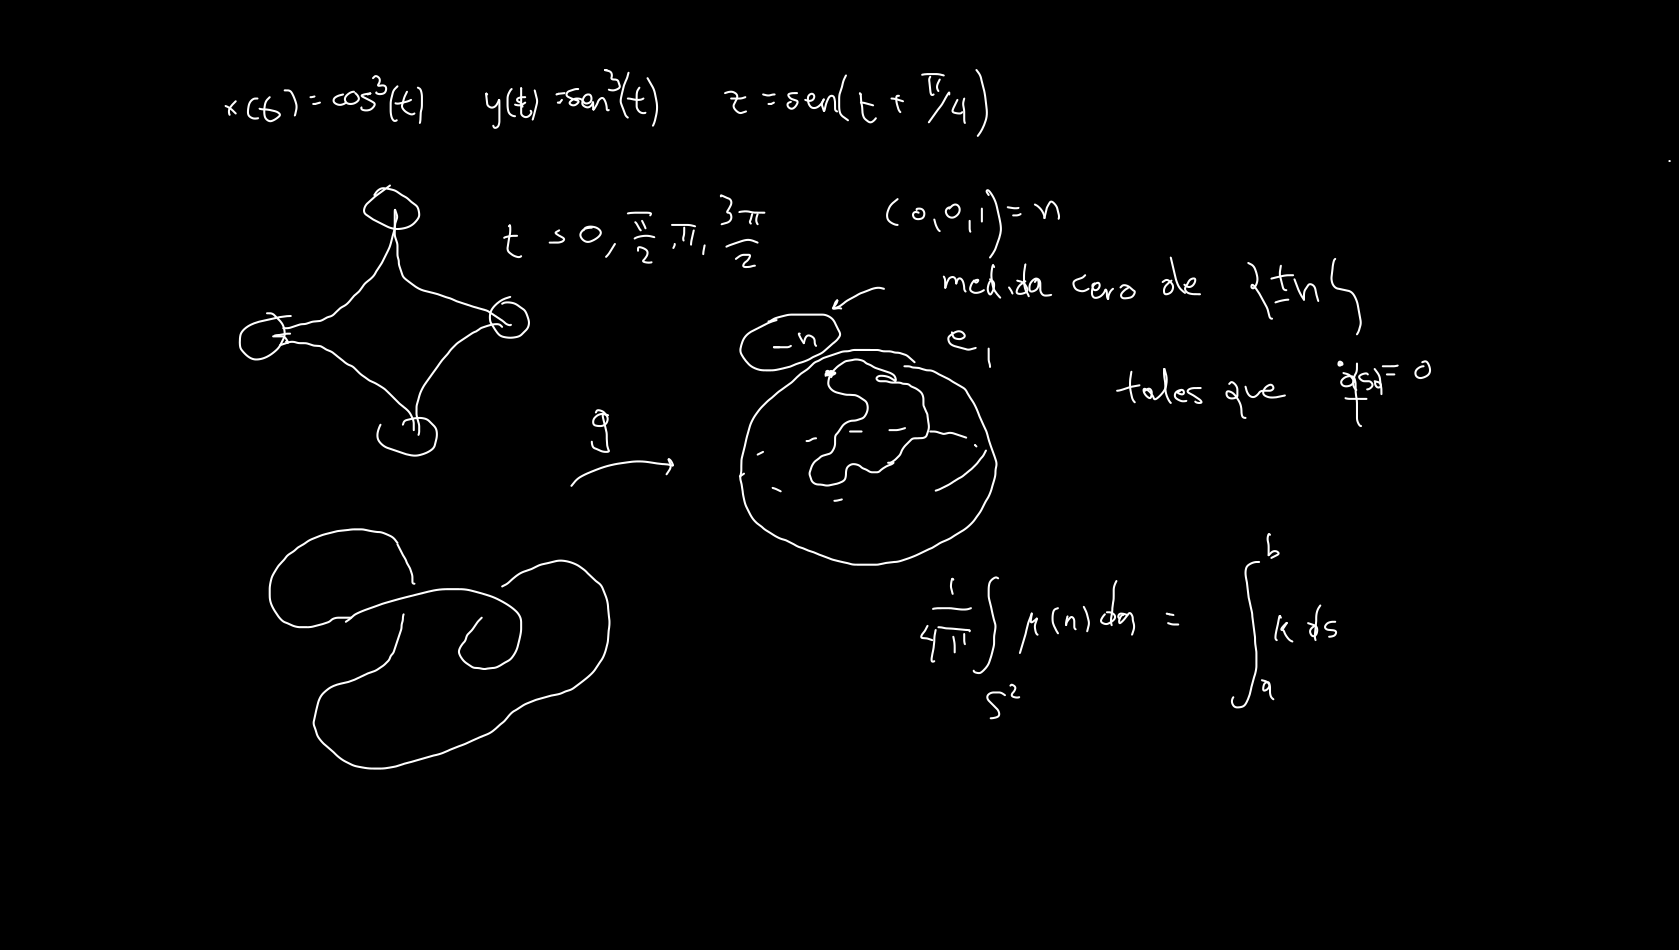 x(t) = cos³(t) y(t) = sen³(t) z = sen(t + π/4)
t = 0, π/2, π, 3π/2
(0,0,1) = n
medida cero de {±n}
-n
e₁
tales que q(s) = 0
g
1/4π ∫_{S²} μ(n) dn = ∫_a^b k ds